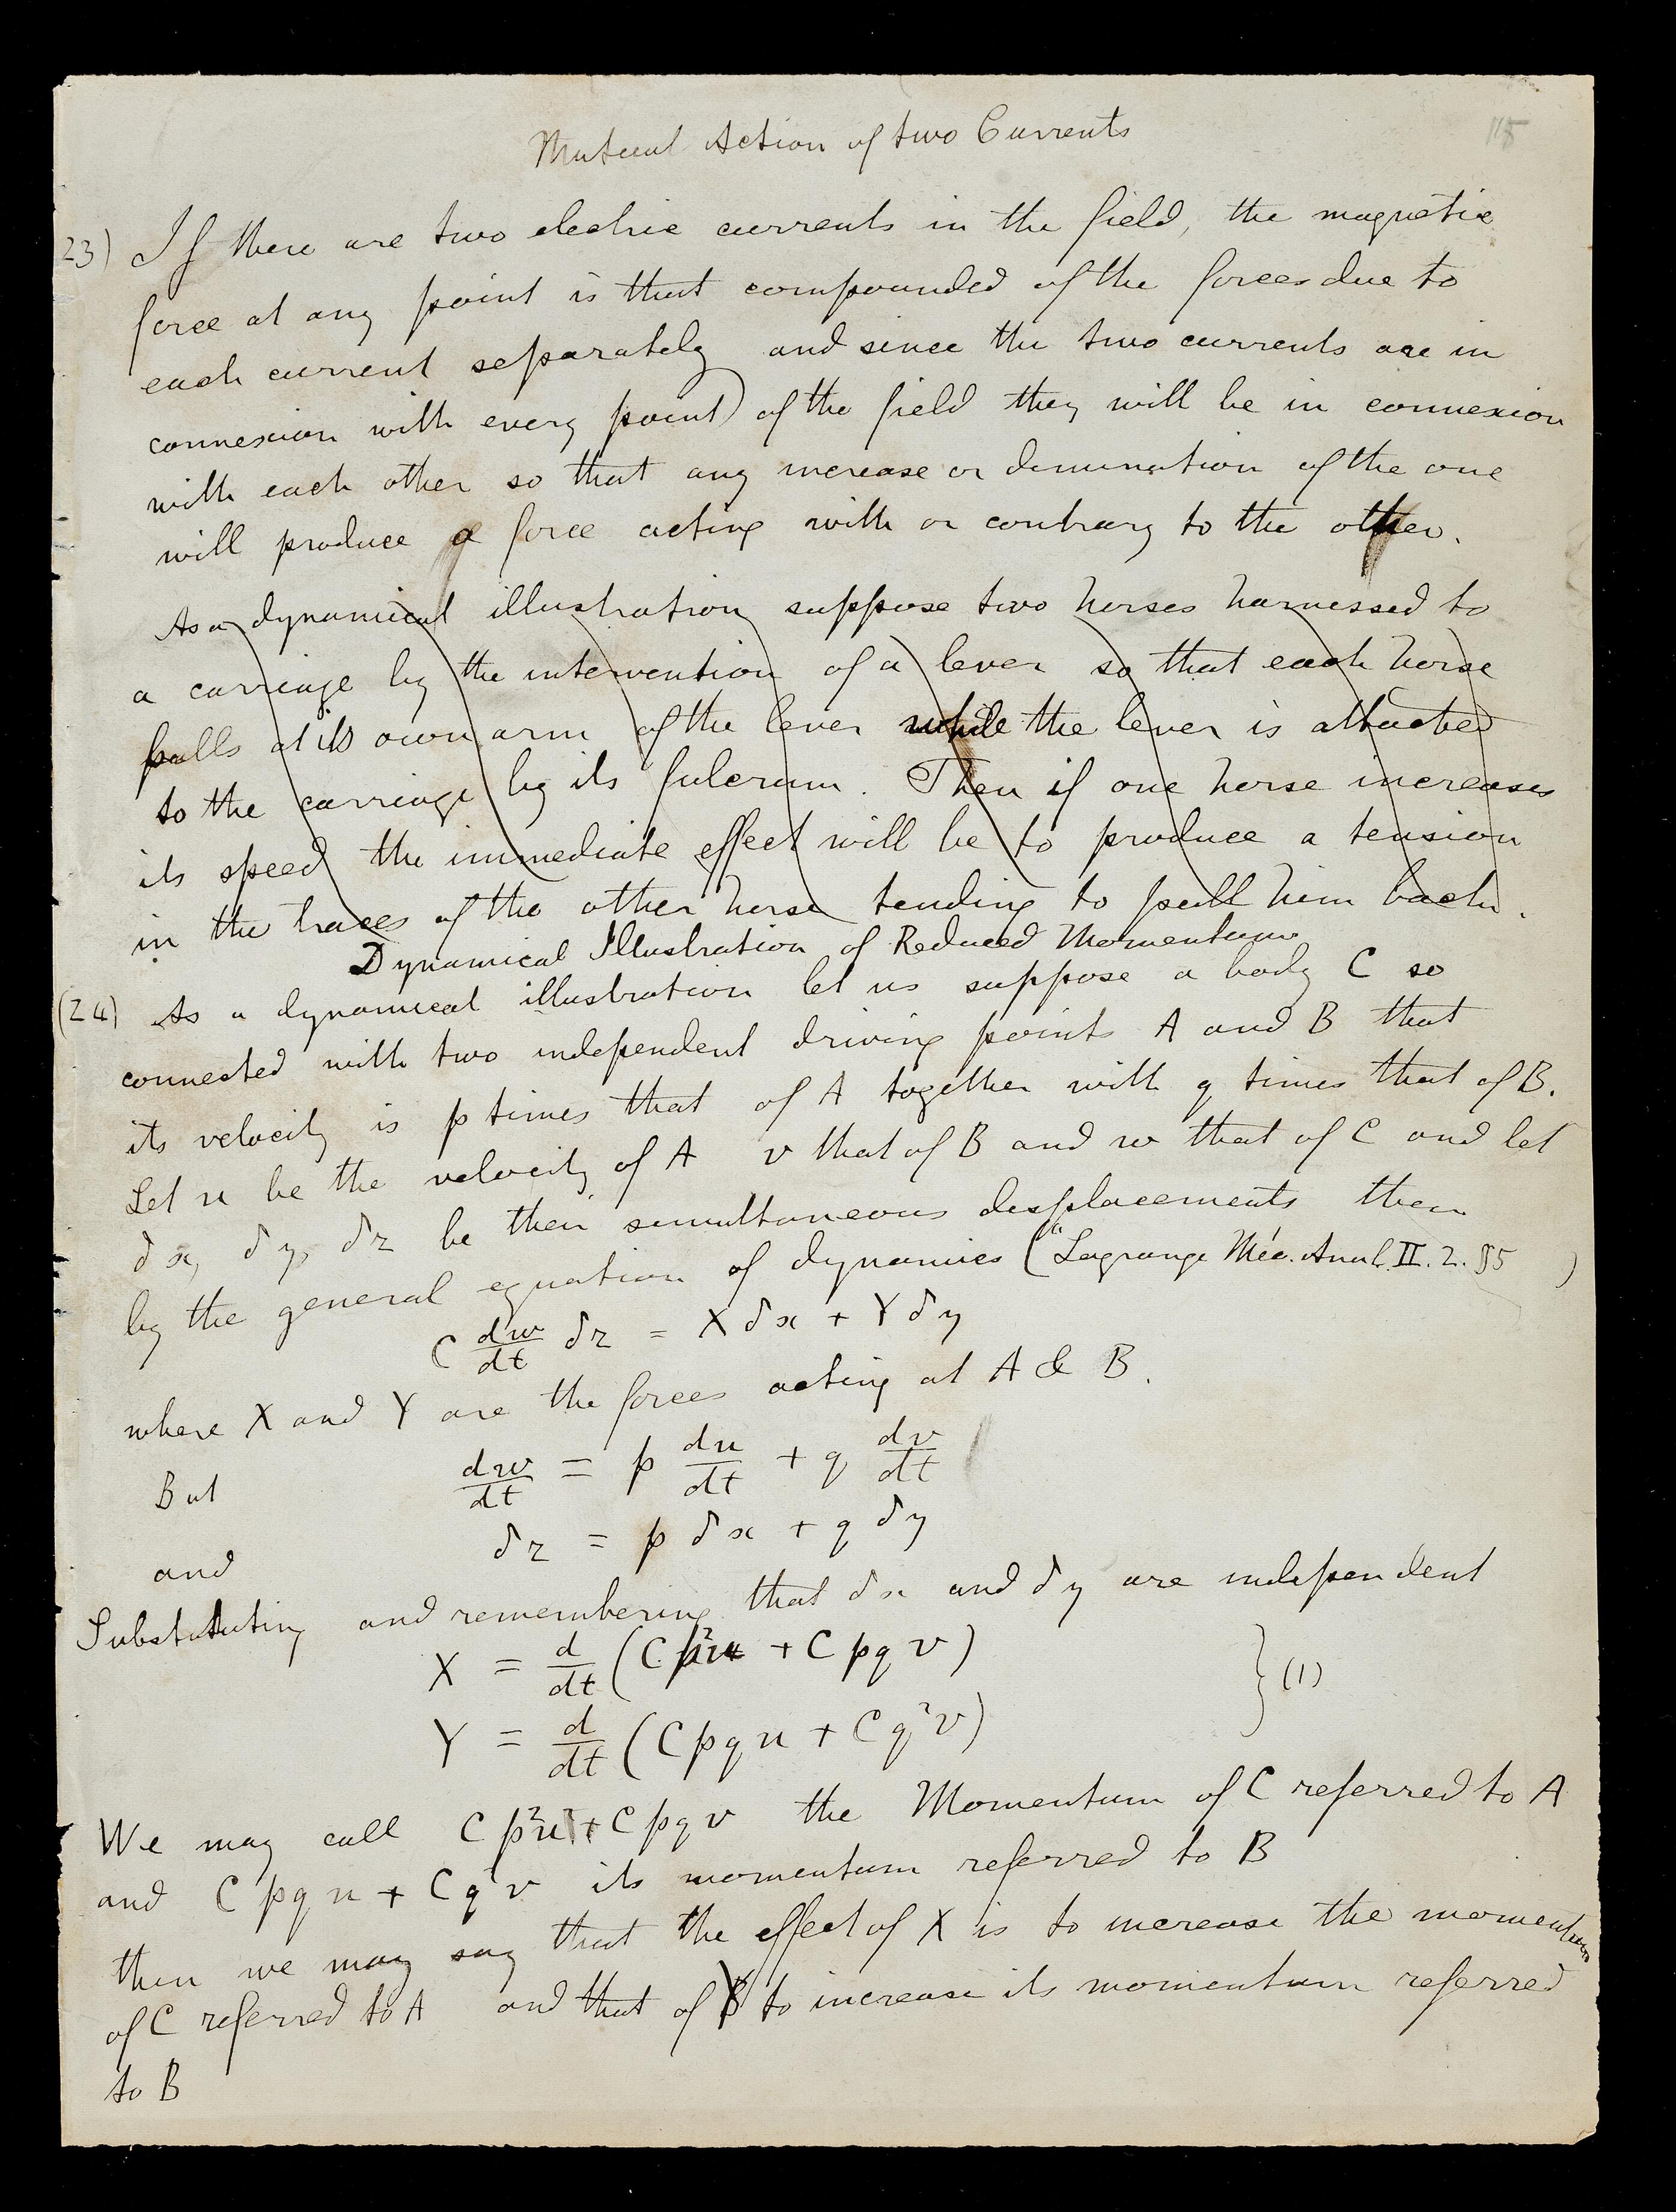 Mutual Action of two Currents
115
23) If there are two electric currents in the field, the magnetic
force at any point is that compounded of the forces due to
each current separately and since the two currents are in
connexion with every point of the field they will be in connexion
with each other so that any increase or diminution of the one
will produce a force acting with or contrary to the other.
As a dynamical illustration suppose two horses harnessed to
a carriage by the intervention of a lever so that each horse
pulls at its own arm of the lever while the lever is attached
to the carriage by its fulcrum. Then if one horse increases
its speed the immediate effect will be to produce a tension
in the traces of the other horse tending to pull him back.
Dynamical Illustration of Reduced Momentum
(24) As a dynamical illustration let us suppose a body C so
connected with two independent driving points A and B that
its velocity is p times that of A together with q times that of B.
Let u be the velocity of A v that of B and w that of C and let
δx, δy, δz be their simultaneous displacements then
by the general equation of dynamics ("Lagrange Méc. Anal. II. 2. §5 )
C dw/dt δz = X δx + Y δy
where X and Y are the forces acting at A & B.
But dw/dt = p du/dt + q dv/dt
and δz = p δx + q δy
Substituting and remembering that δx and δy are independent
X = d/dt (C p²u + C pq v)
Y = d/dt (C pq u + C q²v) } (1)
We may call C p²u + C pq v the Momentum of C referred to A
and C pq u + C q²v its momentum referred to B
then we may say that the effect of X is to increase the momentum
of C referred to A and that of Y to increase its momentum referred
to B